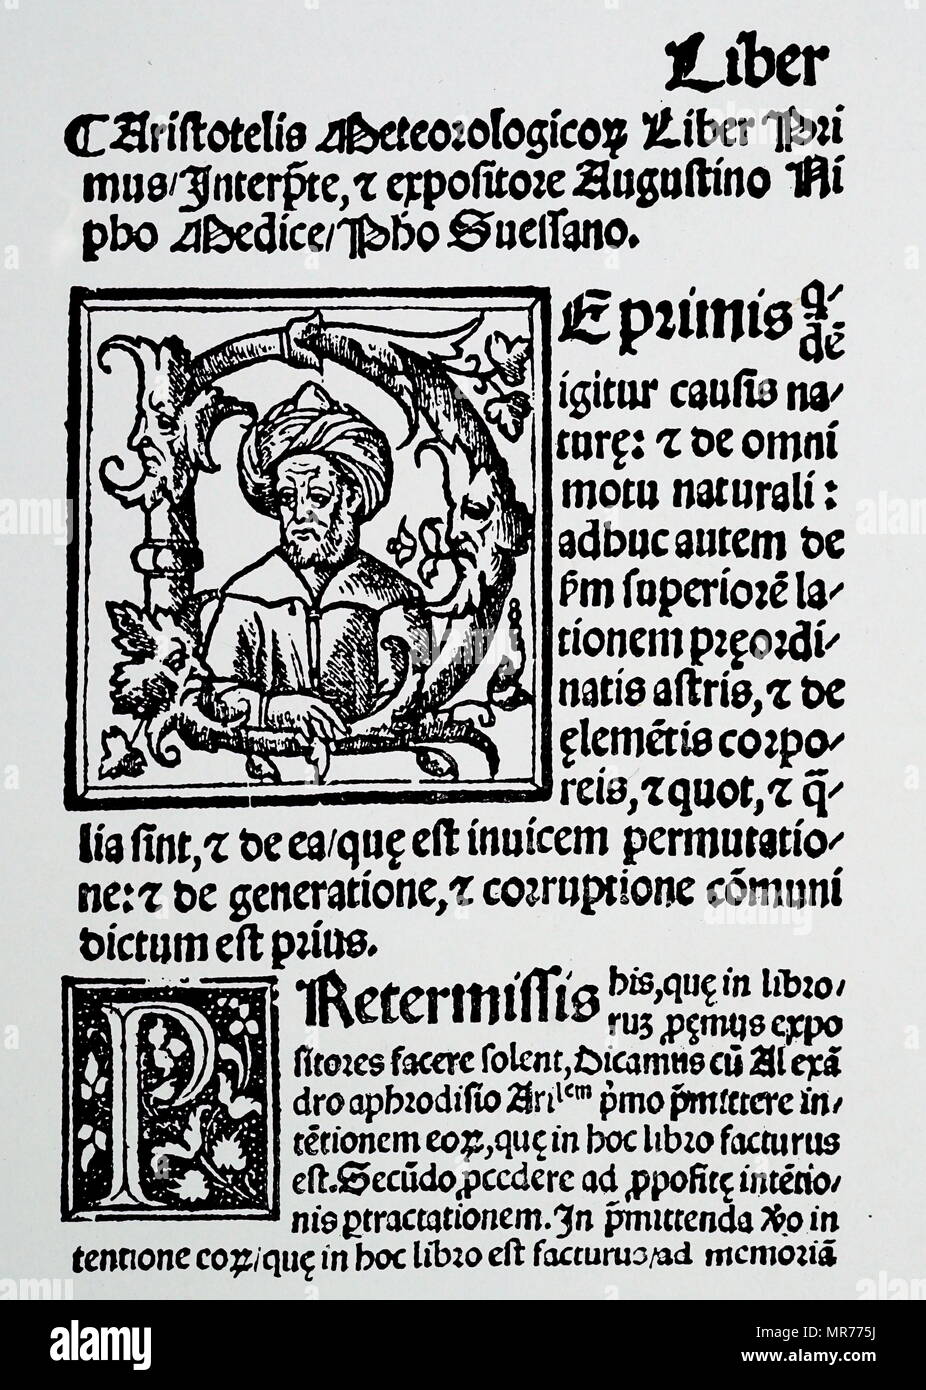 Liber
¶ Aristotelis Meteorologicoꝝ Liber Pri
mus/Interp̃te, ⁊ expositore Augustino Ni
pho Medice/Pho Suessano.
DE primis q̃/
dẽ
igitur causis na/
turę: ⁊ de omni
motu naturali:
adhuc autem de
ſm superiorẽ la/
tionem pręordi/
natis astris, ⁊ de
ęlemẽtis corpo/
reis, ⁊ quot, ⁊ q̃/
lia sint, ⁊ de ea/quę est inuicem permutatio/
ne: ⁊ de generatione, ⁊ corruptione cõmuni
dictum est prius.
PRetermissis his, quę in libro/
ruꝫ ꝓęmijs expo
sitores facere solent, Dicamus cũ Alexã
dro aphrodisio Ari^lem p̃mo p̃mittere in/
tẽtionem eoꝝ, quę in hoc libro facturus
est. Secũdo ꝓcedere ad ꝓpositę intẽtio/
nis ꝑtractationem. In p̃mittenda ꝟo in
tentione eoꝝ/quę in hoc libro est facturus/ad memoriã
alamy
Image ID: MR775J
www.alamy.com